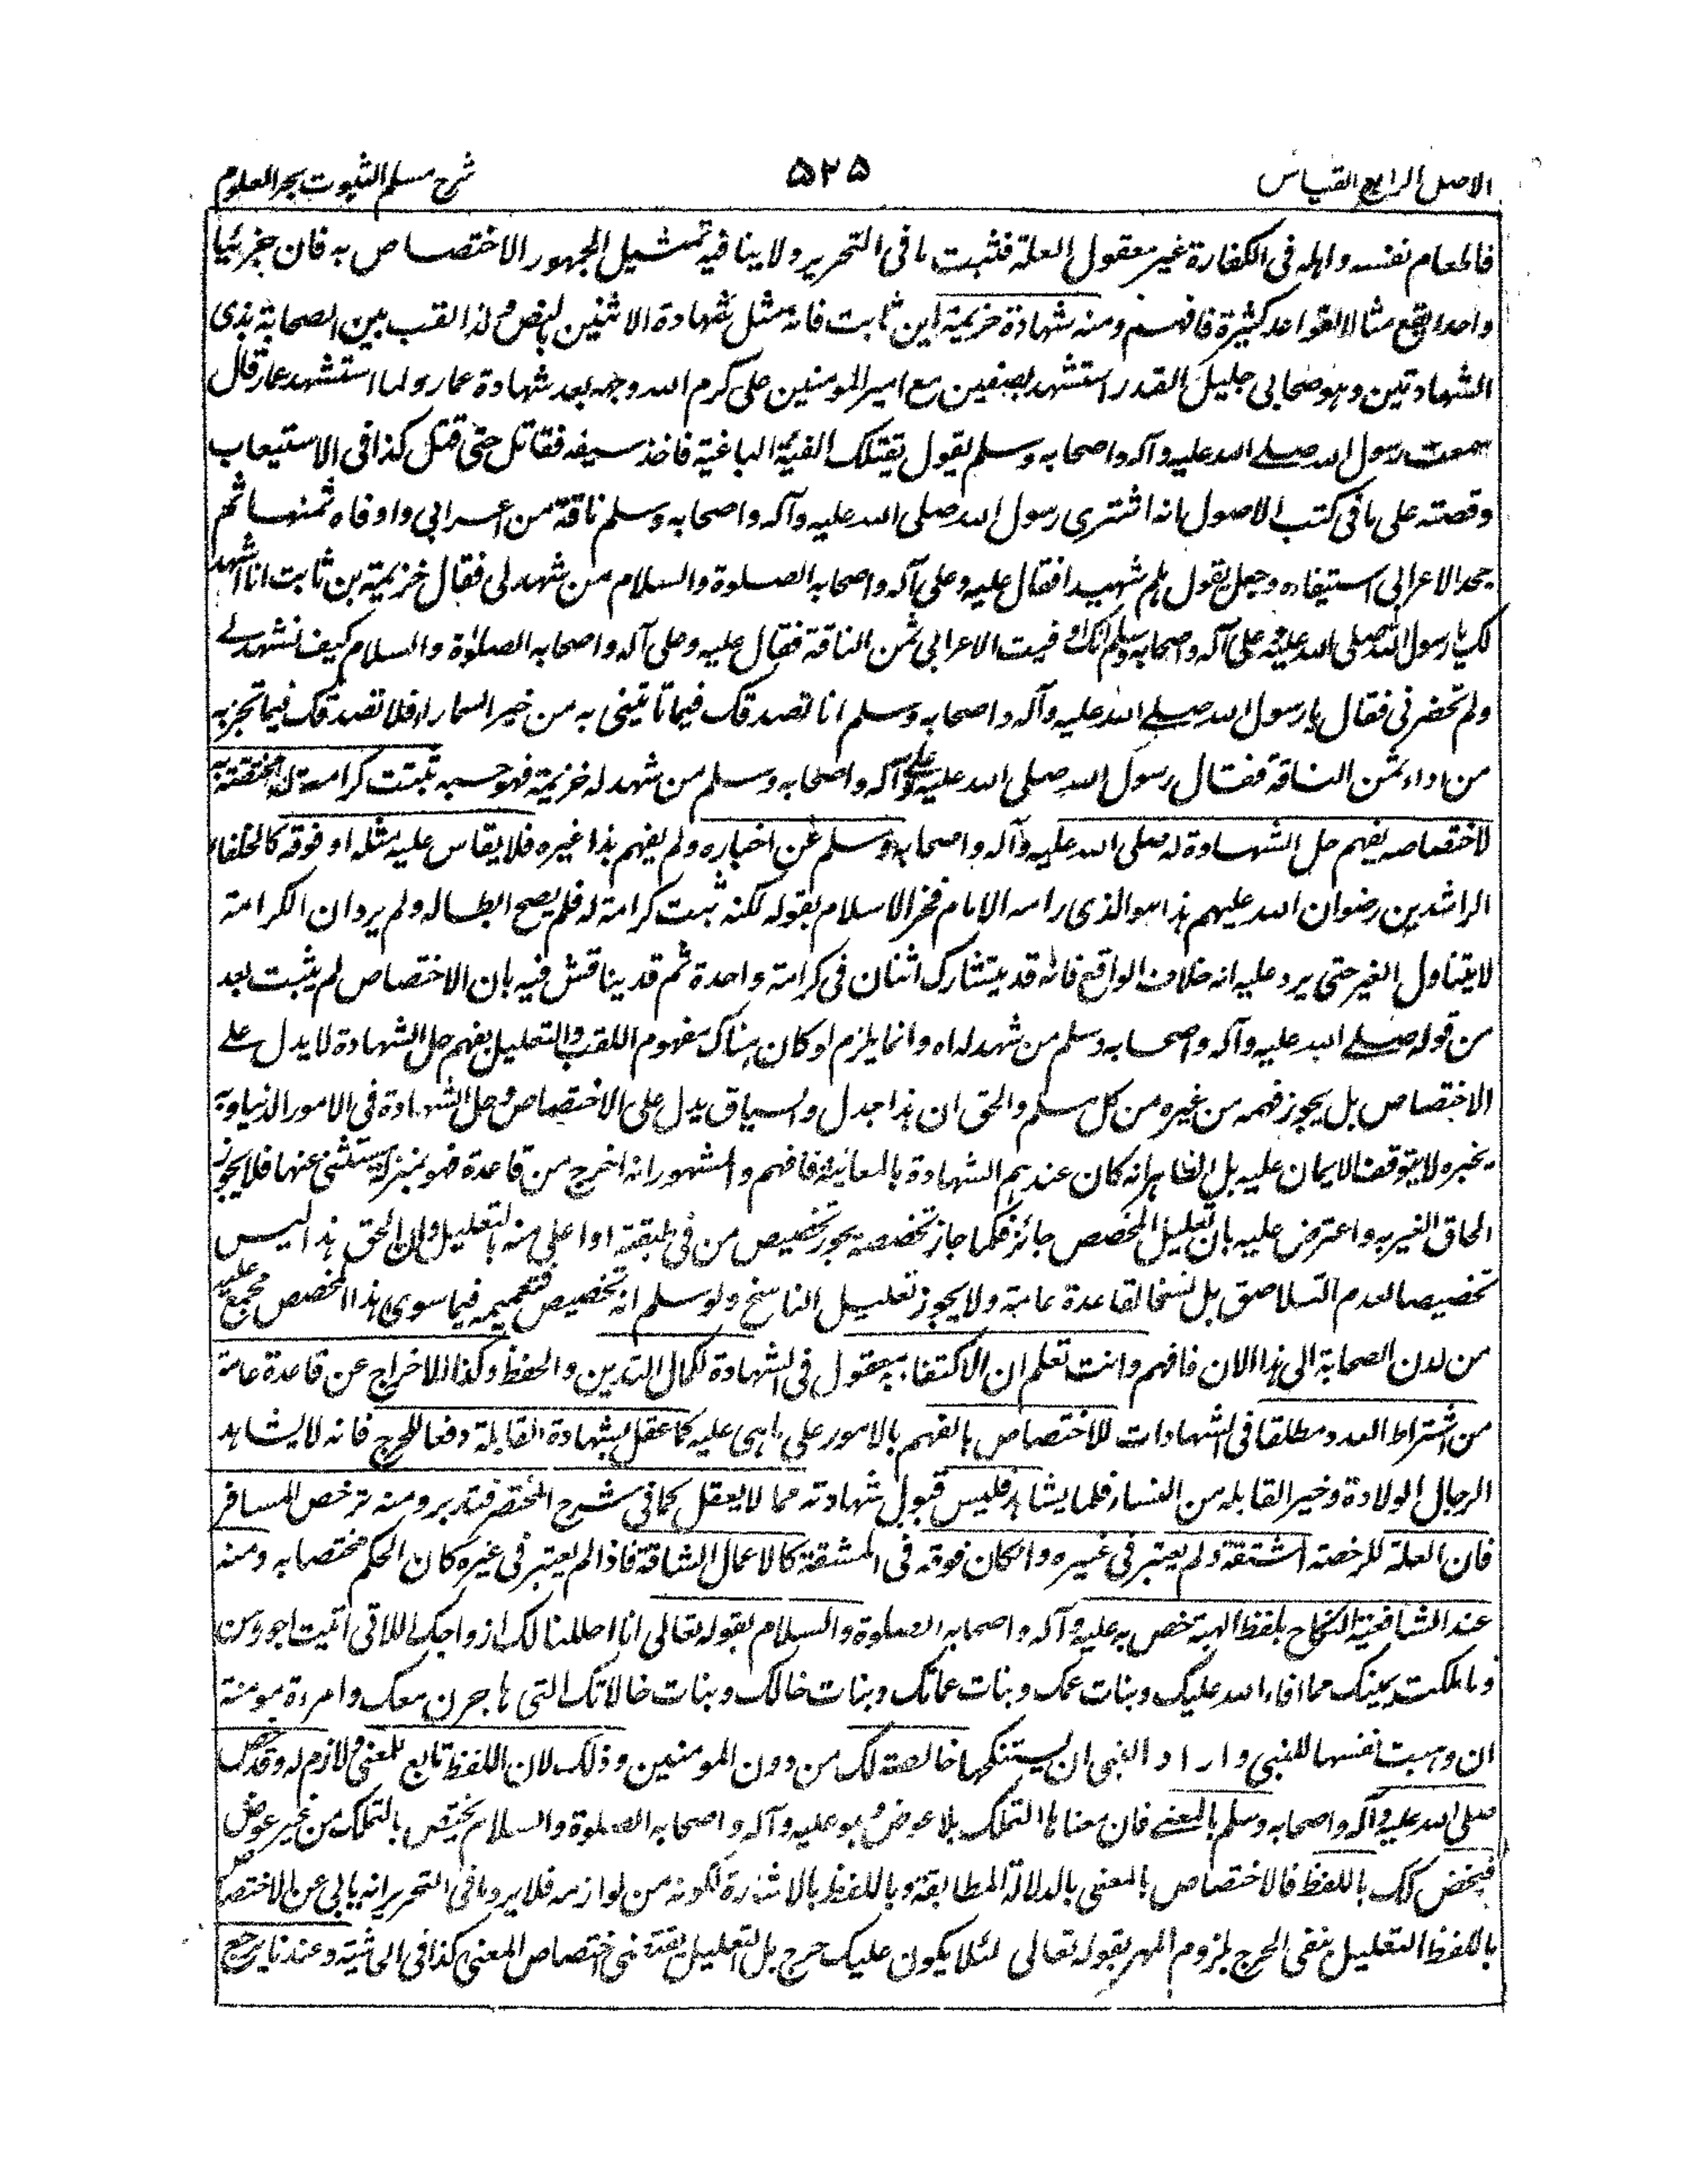 الاصل الرابع القياس
۵۲۵
شرح مسلم الثبوت بحر العلوم
فاطعام نفسه واهله فى الكفارة غير معقول العلة فثبت ما فى التحرير ولا ينافيه تمثيل الجمهور الاختصاص به فان جزئيا
واحدا يقع مثالا لقواعد كثيرة فافهم ومنه شهادة خزيمة ابن ثابت فانه مثل شهادة الاثنين بالنص ولذا لقب بين الصحابة بذى
الشهادتين وهو صحابى جليل القدر استشهد بصفين مع امير المومنين على كرم الله وجهه بعد شهادة عمار ولما استشهد عمار قال
سمعت رسول الله صلے الله عليه وآله واصحابه وسلم يقول تقتلك الفئة الباغية فاخذ سيفه فقاتل حتى قتل كذا فى الاستيعاب
وقصته على ما فى كتب الاصول انه اشترى رسول الله صلى الله عليه وآله واصحابه وسلم ناقة من اعرابى واوفاه ثمنها ثم
جحد الاعرابى استيفاءه وجعل يقول هلم شهيدا فقال عليه وعلى آله واصحابه الصلوة والسلام من شهد لى فقال خزيمة بن ثابت انا اشهد
لك يا رسول الله صلى الله عليه وعلى آله واصحابه وسلم انك اوفيت الاعرابى ثمن الناقة فقال عليه وعلى آله واصحابه الصلوٰة والسلام كيف تشهد لے
ولم تحضرنى فقال يا رسول الله صلے الله عليه وآله واصحابه وسلم انا نصدقك فيما تاتينى به من خبر السماء افلا نصدقك فيما تخبر به
من اداء ثمن الناقة فقال رسول الله صلى الله عليه وعلى آله واصحابه وسلم من شهد له خزيمة فهو حسبه ثبتت كرامة له مختصة به
لاختصاصه بفهم حل الشهادة له صلى الله عليه وآله واصحابه وسلم عن اخباره ولم يفهم هذا غيره فلا يقاس عليه مثله او فوقه كالخلفاء
الراشدين رضوان الله عليهم هذا هو الذى رامه الامام فخر الاسلام بقوله لكنه ثبت كرامة له فلم يصح ابطاله ولم يرد ان الكرامة
لا يتناول الغير حتى يرد عليه انه خلاف الواقع فانه قد يتشارك اثنان فى كرامة واحدة ثم قد يناقش فيه بان الاختصاص لم يثبت بعد
من قوله صلے الله عليه وآله واصحابه وسلم من شهد له اه وانما يلزم لو كان هناك مفهوم اللقب والتعليل بفهم حل الشهادة لا يدل علے
الاختصاص بل يجوز فهمه من غيره من كل مسلم والحق ان هذا جدل والسياق يدل على الاختصاص وحل الشهادة فى الامور الدنياوية
بخبره لا يتوقف الايمان عليه بل الظاهر انه كان عندهم الشهادة بالمعاينة فافهم والمشهور انه اخرج من قاعدة فهو بمنزلة المستثنى عنها فلا يجوز
الحاق الغير به واعترض عليه بان تعليل المخصص جائز فكما جاز تخصصه يجوز تخصيص من فى طبقته او اعلى منه بالتعليل وان الحق هذا ليس
تخصيصا لعدم التلاصق بل نسخا لقاعدة عامة ولا يجوز تعليل الناسخ ولو سلم انه تخصيص فتعميمه فيما سوى هذا المخصص مجمع عليه
من لدن الصحابة الى هذا الان فافهم وانت تعلم ان الاكتفاء به معقول فى الشهادة لكمال التدين والحفظ وكذا الاخراج عن قاعدة عامة
من اشتراط العدد مطلقا فى الشهادات للاختصاص بالفهم بالامور على ما هى عليه كما عقل بشهادة القابلة دفعا للحرج فانه لا يشاهد
الرجال الولادة وغير القابلة من النساء فلما يشاهد فليس قبول شهادته مما لا يعقل كما فى شرح المختصر فتدبر ومنه ترخص المسافر
فان العلة للرخصة المشقة ولم يعتبر فى غيره وان كان فوقه فى المشقة كالاعمال الشاقة فاذا لم يعتبر فى غيره كان الحكم مختصا به ومنه
عند الشافعية النكاح بلفظ الهبة خص به عليه وآله واصحابه الصلوة والسلام بقوله تعالى انا احللنا لك ازواجك اللاتى اتيت اجورهن
وما ملكت يمينك مما افاء الله عليك وبنات عمك وبنات عماتك وبنات خالك وبنات خالاتك التى هاجرن معك وامرءة مومنة
ان وهبت نفسها للنبى واراد النبى ان يستنكحها خالصة لك من دون المومنين وذلك لان اللفظ تابع للمعنى ولازم له وقد خص
صلى الله عليه وآله واصحابه وسلم بالمعنى فان معناها التملك بلا عوض وهو عليه وآله واصحابه الصلوة والسلام يختص بالتملك من غير عوض
فيختص كك باللفظ فالاختصاص بالمعنى بالدلالة المطابقة وباللفظ بالاشارة لكونه من لوازمه فلا يرد ما فى التحرير انه يابى عن الاختصاص
باللفظ التعليل بنفى الحرج بلزوم المهر بقوله تعالى لئلا يكون عليك حرج بل التعليل يقتضى اختصاص المعنى كذا فى الحاشية وعندنا يرجع